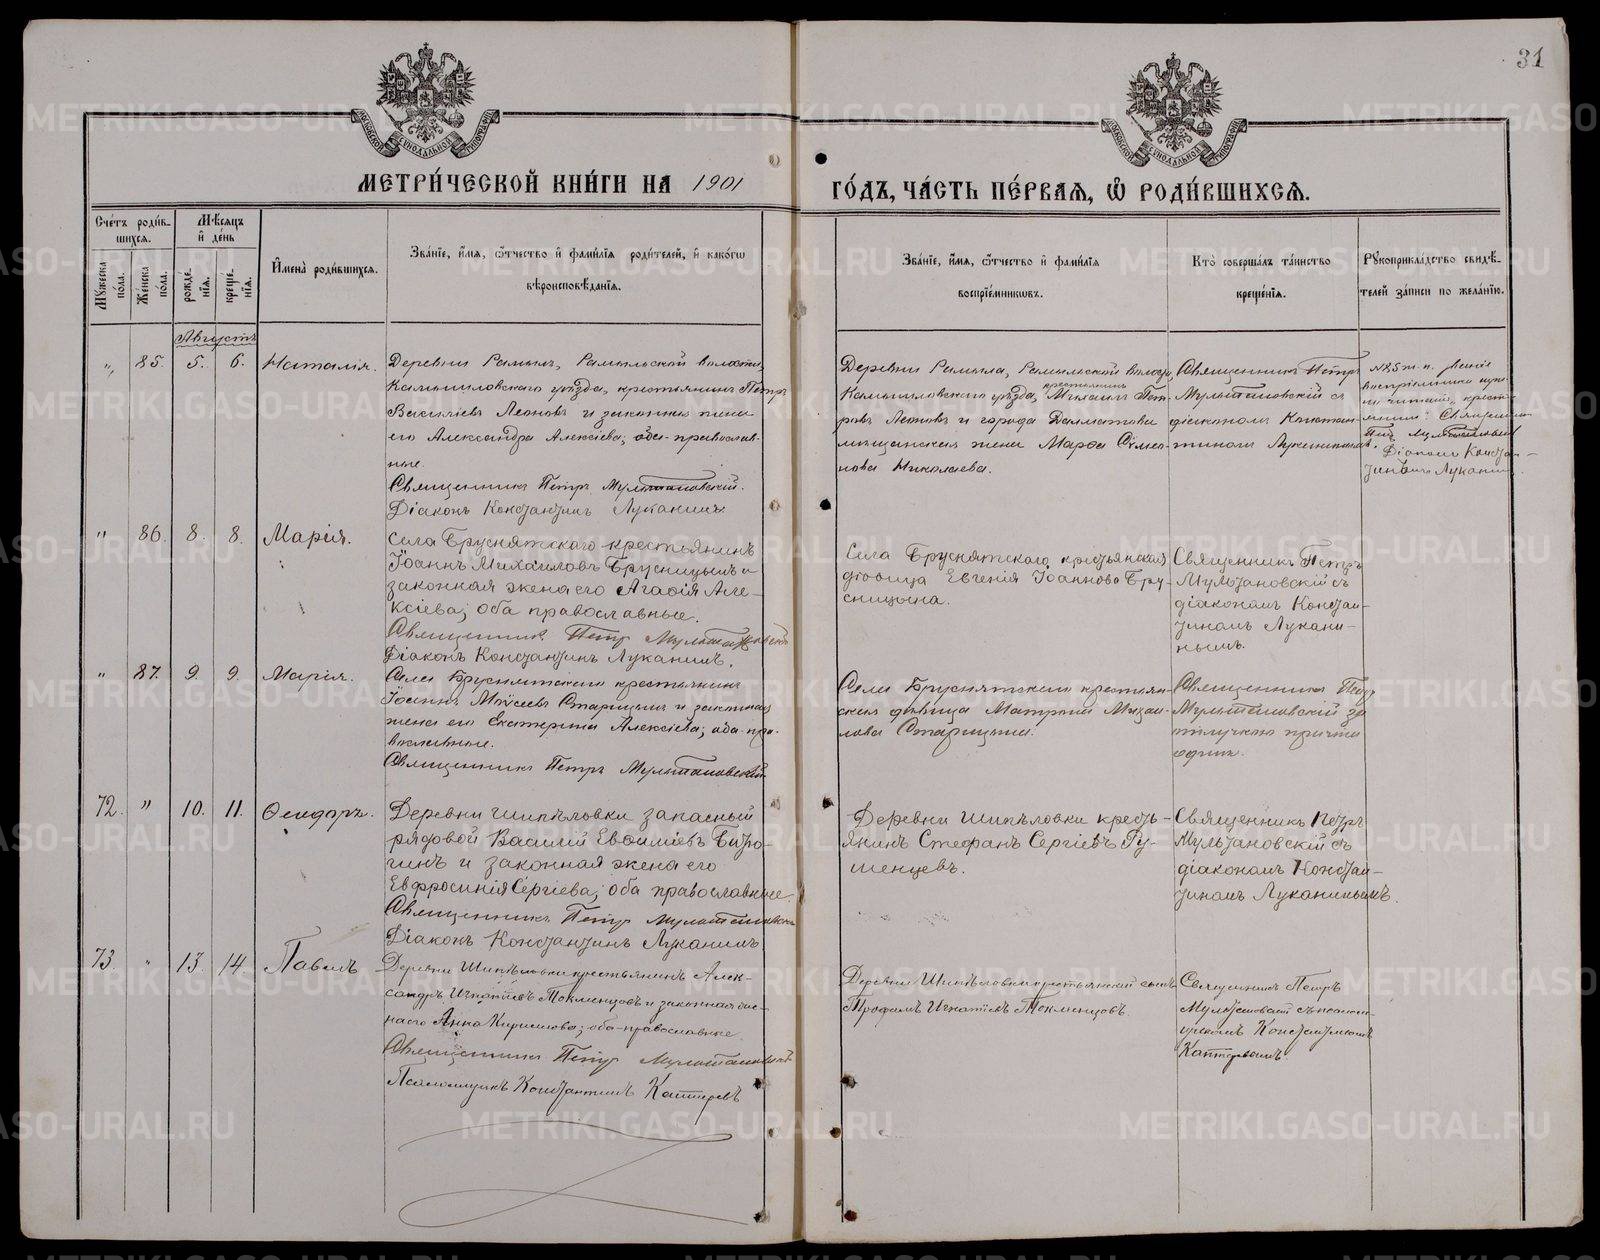 31
МОСКОВСКОЙ СУНОДАЛЬНОЙ ТИПОГРАФІИ
МОСКОВСКОЙ СУНОДАЛЬНОЙ ТИПОГРАФІИ
МЕТРИ́ЧЕСКОЙ КНИ́ГИ НА 1901
ГО́ДЪ, ЧА́СТЬ ПЕ́РВАЯ, Ѡ РОДИ́ВШИХСЯ.
Сче́тъ роди́в-
шихся.
Мꙋ́жеска по́ла.
Же́нска по́ла.
Мѣ́сяцъ
и҆ де́нь
рожде́нїя.
креще́нїя.
И҆мена̀ роди́вшихся.
Зва́нїе, и҆́мя, ѻ҆́тчество и҆ фами́лїя роди́телей, и҆ како́гѡ
вѣроисповѣ́данїя.
Зва́нїе, и҆́мя, ѻ҆́тчество и҆ фами́лїя
воспрїе́мникѡвъ.
Кто̀ соверша́лъ та́инство
креще́нїя.
Рꙋкоприкла́дство свидѣ́-
телей за́писи по жела́нїю.
Августъ
" 85. 5. 6. Наталія.
Деревни Рамыла, Рамыльской волости,
Камышловскаго уѣзда, крестьянинъ Петръ
Василіевъ Леоновъ и законная жена
его Александра Алексіева; оба православ-
ные.
Священникъ Петръ Мультановскій.
Діаконъ Константинъ Луканинъ
Деревни Рамыла, Рамыльской волости,
крестьянинъ
Камышловскаго уѣзда, Михаилъ Пет-
ровъ Леоновъ и города Далматова
мѣщанская жена Марѳа
нова Николаева.
Священникъ Петръ
Мультановскій съ
діакономъ Констан-
тиномъ Луканинымъ.
Священни-
Петръ Мультановскій
Діаконъ Констан-
тинъ Луканинъ.
" 86. 8. 8. Марія.
Села Бруснятскаго крестьянинъ
Іоаннъ Михаиловъ Брусницынъ и
законная жена его Агафія Але-
ксіева; оба православные.
Священникъ Петръ Мультановскій
Діаконъ Константинъ Луканинъ.
Села Бруснятскаго крестьянская
дѣвица Евгенія Іоаннова Бру-
сницына.
Священникъ Петръ
Мультановскій съ
діакономъ Констан-
тиномъ Лукани-
нымъ.
" 87. 9. 9. Марія.
Села Бруснятскаго крестьянинъ
Іоаннъ Моѵсеевъ Старицынъ и законная
жена его Екатерина Алексіева; оба пра-
вославные.
Священникъ Петръ Мультановскій
Села Бруснятскаго крестьян-
ская дѣвица Матрона Михаи-
лова Старицына.
Священникъ Петръ
Мультановскій за
отлучкою причта
одинъ.
72. " 10. 11. Ѳеодоръ.
Деревни Шипѣловки запасный
рядовой Василій Евѳиміевъ
гинъ и законная жена его
Евфросинія Сергіева; оба православные.
Священникъ Петръ Мультановскій
Діаконъ Константинъ Луканинъ
Деревни Шипѣловки кресть-
янинъ Стефанъ Сергіевъ Ру-
шенцевъ.
Священникъ Петръ
Мультановскій съ
діакономъ Констан-
тиномъ Луканинымъ.
73. " 13. 14. Павелъ
Деревни Шипѣловки крестьянинъ Алек-
сандръ Игнатіевъ Токменцовъ и законная же-
на его Анна Кириллова; оба православные
Священникъ Петръ Мультановскій
Псаломщикъ Константинъ Каптеревъ
Деревни Шипѣловки крестьянскій сынъ
Трофимъ Игнатіевъ Токменцовъ.
Священникъ Петръ
Мультановскій съ псалом-
щикомъ Константиномъ
Каптеревымъ
METRIKI.GASO-URAL.RU